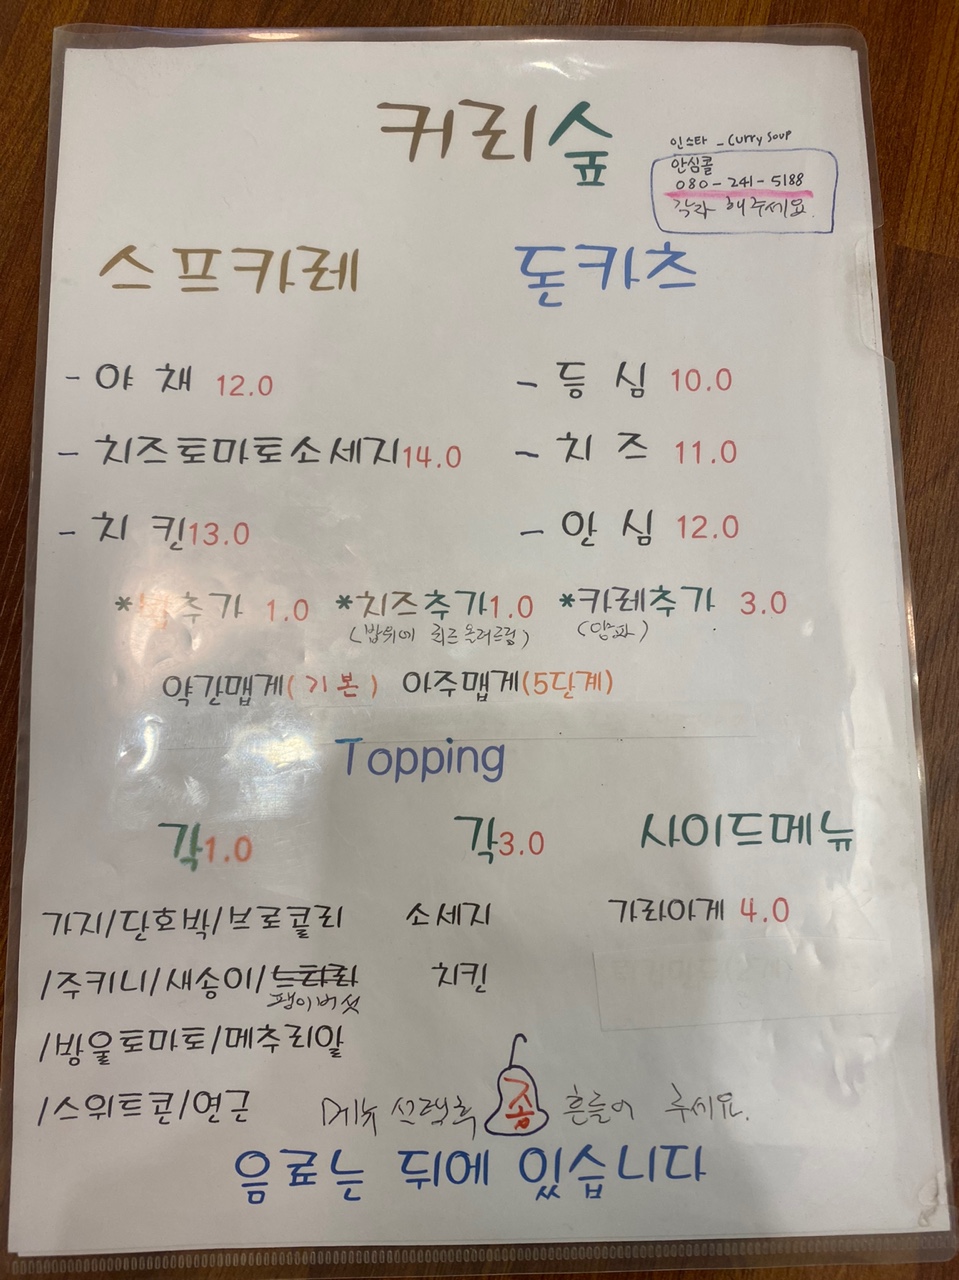 커리숲
인스타 _ Curry Soup
안심콜
080-241-5188
각각 해주세요.
스프카레
- 야 채 12.0
- 치즈토마토소세지 14.0
- 치 킨 13.0
돈카츠
- 등 심 10.0
- 치 즈 11.0
- 안 심 12.0
* 추가 1.0 *치즈추가 1.0 *카레추가 3.0
(밥위에 올려드림)
약간맵게(기본) 아주맵게(5단계)
Topping
각1.0
가지/단호박/브로콜리
/주키니/새송이/느타리
팽이버섯
/방울토마토/메추리알
/스위트콘/연근
각3.0
소세지
치킨
사이드메뉴
가라아게 4.0
메뉴 선택후 종 흔들어 주세요.
음료는 뒤에 있습니다